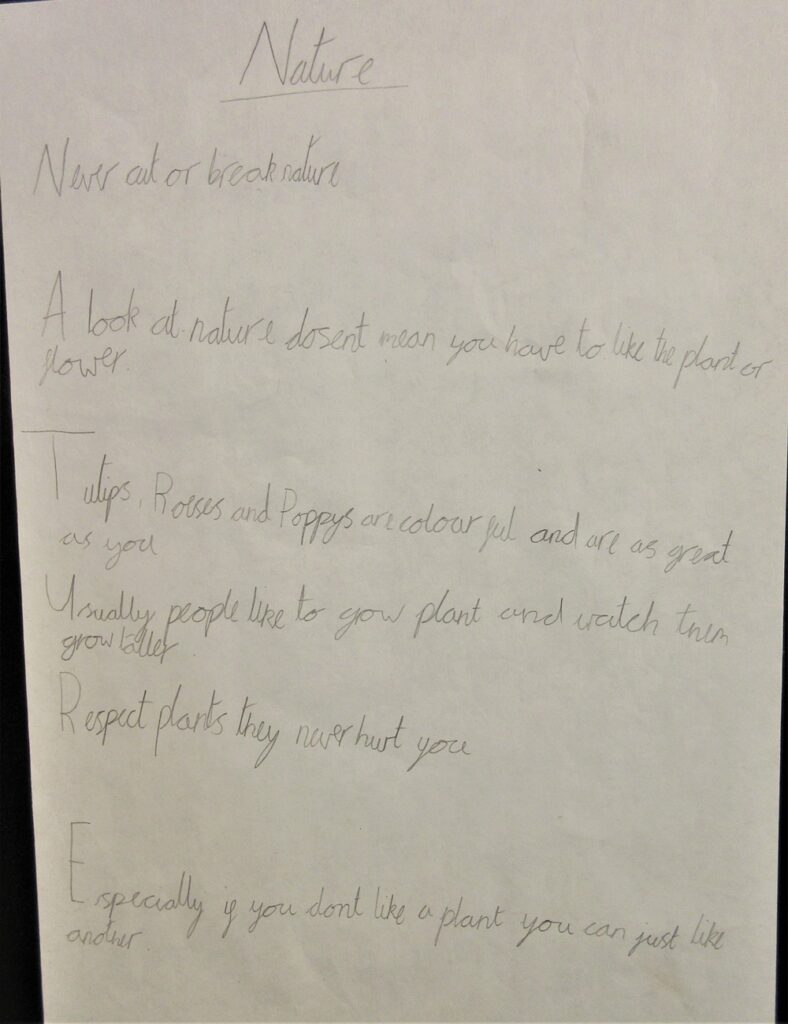 Nature
Never cut or break nature
A look at nature dosent mean you have to like the plant or
flower.
Tulips, Roeses and Poppys are colourful and are as great
as you
Usually people like to grow plant and watch them
grow taller.
Respect plants they never hurt you
Especially if you dont like a plant you can just like
another.